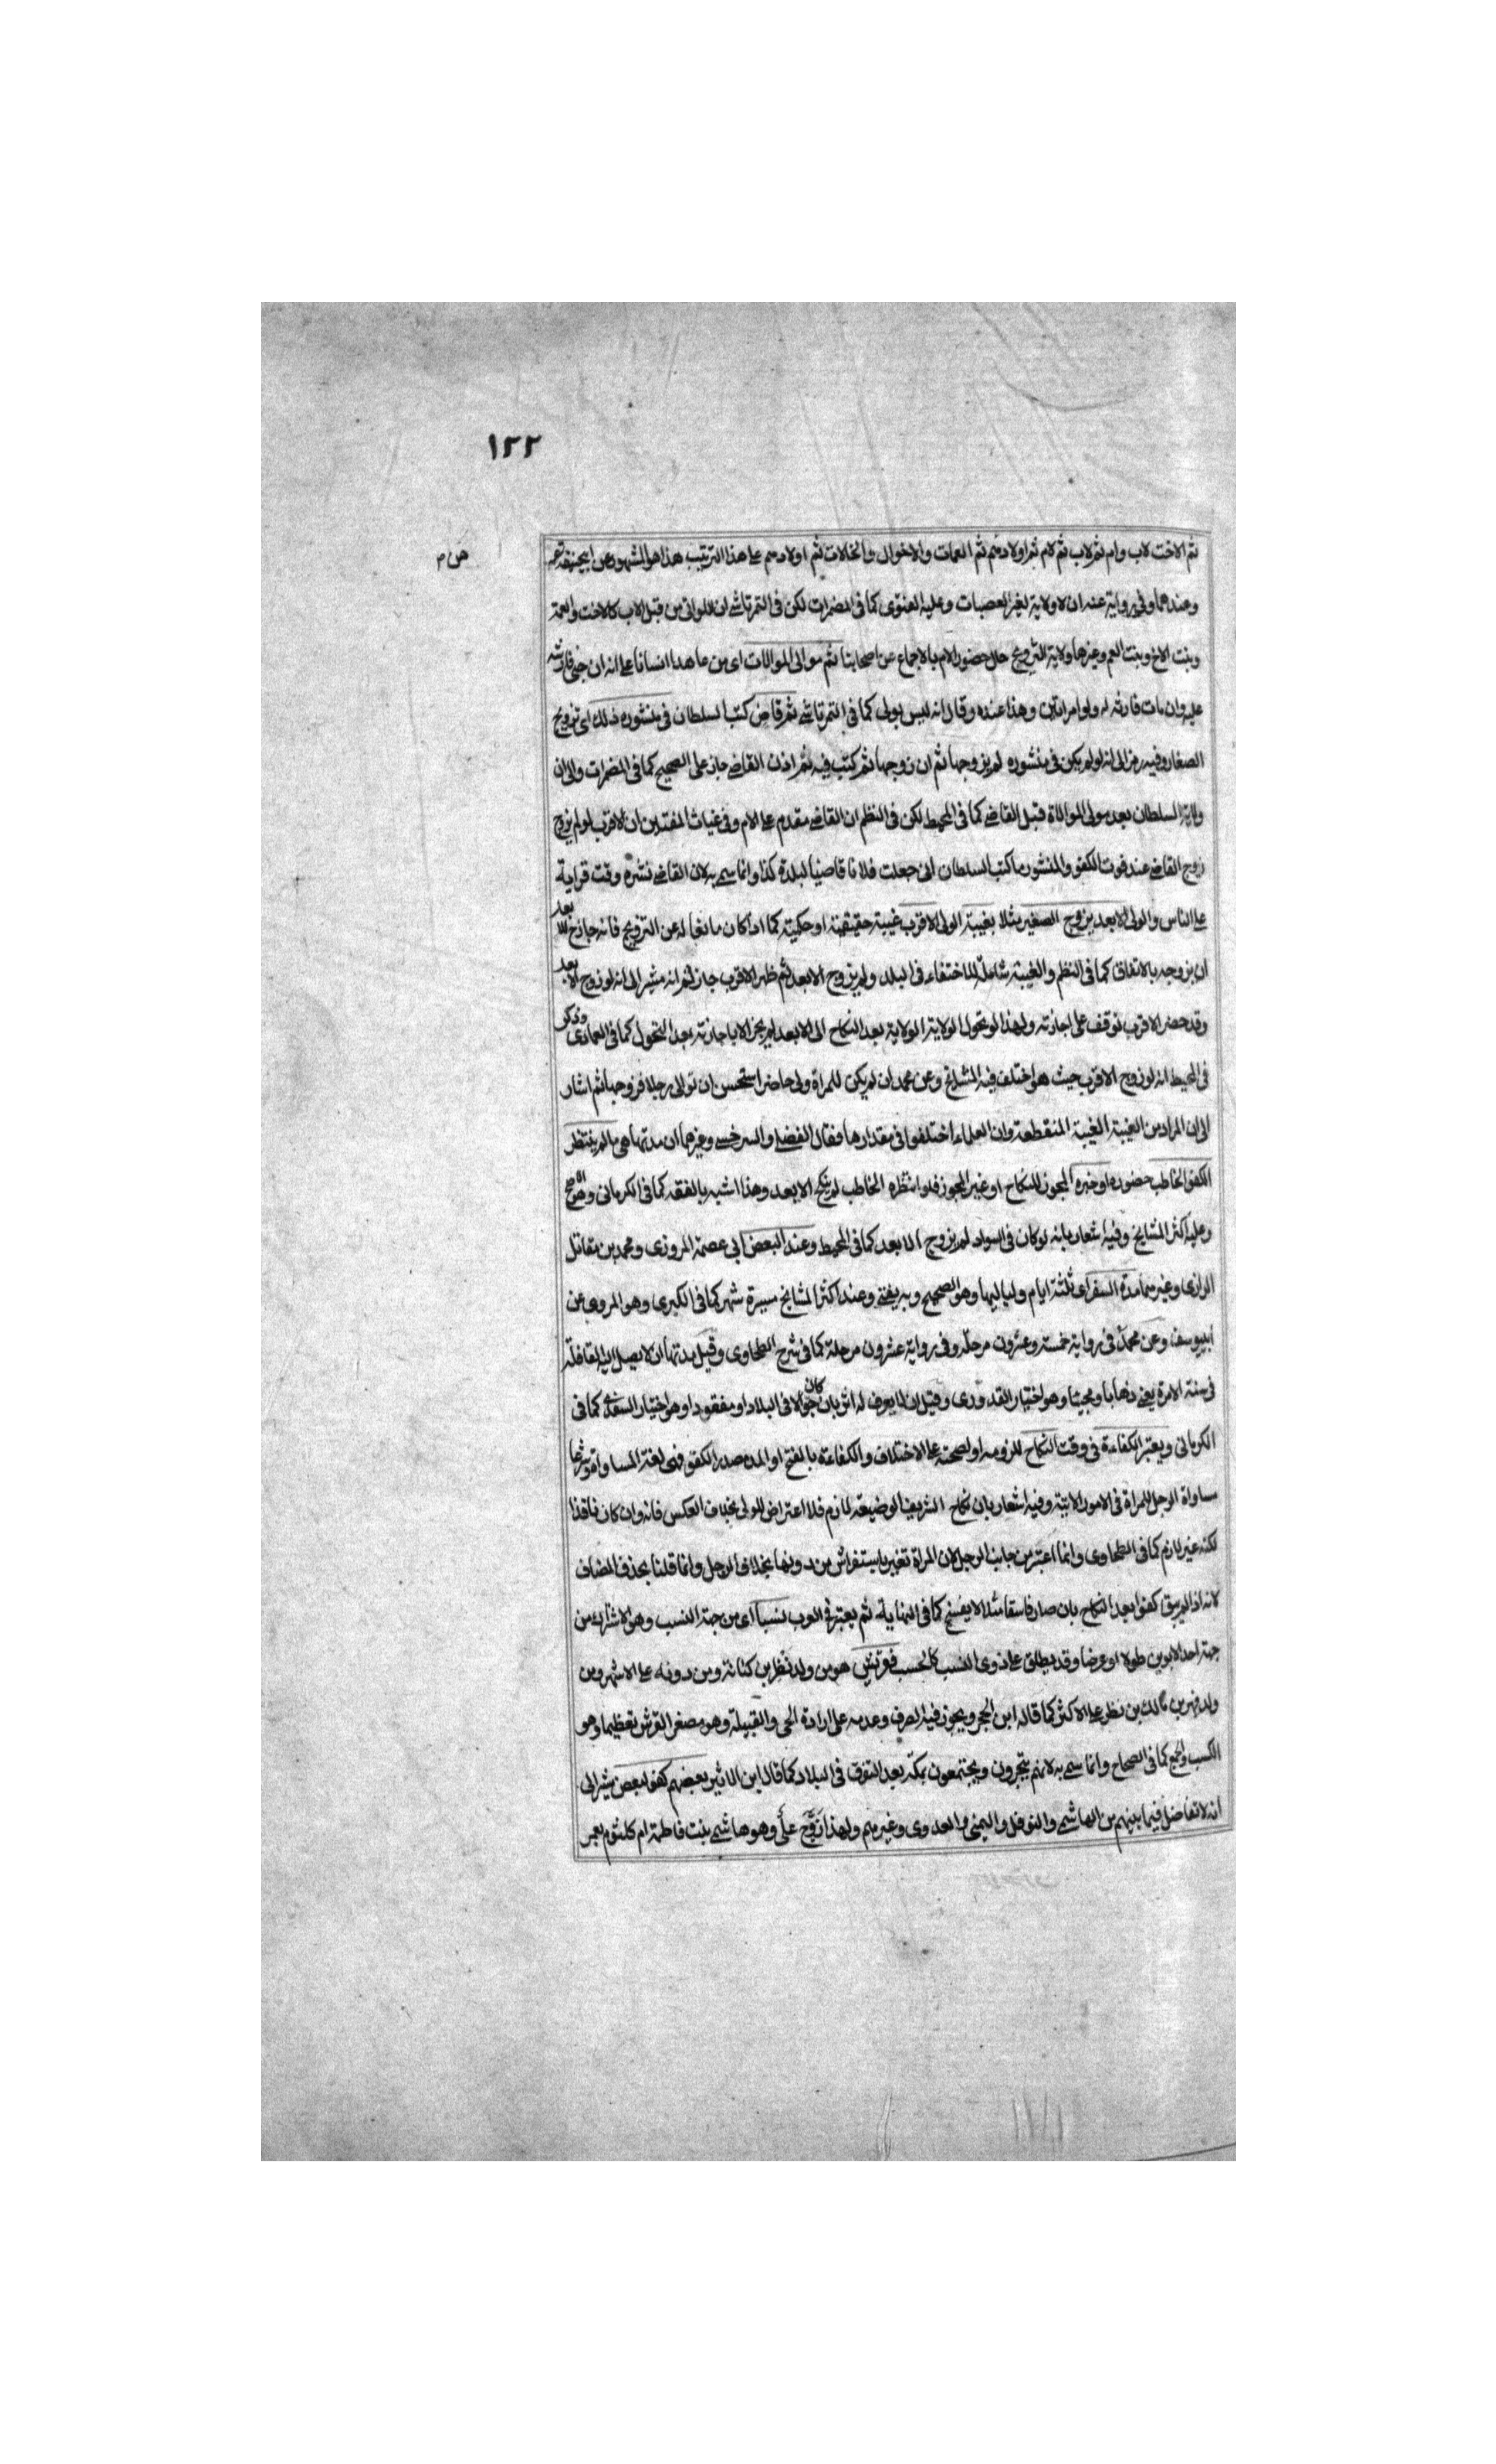 ١٢٢
ثم الاخت لاب وام ثم لاب ثم لام ثم اولادهم ثم العمات والاخوال والخالات ثم اولادهم على هذا الترتيب هذا هو المشهور عن ابيحنيفة
وعندهما وفى رواية عنه ان لا ولاية لغير العصبات وعليه الفتوى كما فى المضمرات لكن فى التمرتاشى ان للواتى من قبل الاب كالاخت والعمة
وبنت الاخ وبنت العم وغيرها ولاية التزويج حال حضور الام بالاجماع عن اصحابنا ثم موالى الموالات اى من عاهد انسانا على انه ان جنى فارشه
عليه وان مات فارثه له ولو امراتين وهذا عنده وقال انه ليس بولى كما فى التمرتاشى ثم قاض كتب السلطان فى منشوره ذلك اى تزويج
الصغار وفيه رمز الى انه لو لم يكن فى منشوره لم يزوجها ثم ان زوجها ثم كتب فيه ثم اذن القاضى جاز على الصحيح كما فى المضمرات والى ان
ولاية السلطان بعد مولى الموالاة قبل القاضى كما فى المحيط لكن فى النظم ان القاضى مقدم على الام وفى غياث المفتيين ان الاقرب لو لم يزوج
زوج القاضى عند فوت الكفو والمنشور ما كتب السلطان انى جعلت فلانا قاضيا لبلدة كذا وانما سمى به لان القاضى نشره وقت قراية
على الناس والولى الابعد يزوج الصغير مثلا بغيبة الولى الاقرب غيبة حقيقية او حكمية كما اذا كان مانعا له عن التزويج فانه جاز ح للابعد
ان يزوجه بالاتفاق كما فى النظم والغيبة شاملة للاختفاء فى البلد ولم يزوج الابعد ثم ظهر الاقرب جاز ثم انه مشير الى انه لو زوج الابعد
وقد حضر الاقرب توقف على اجازته ولهذا لو تحول الولاية الولاية بعد النكاح الى الابعد لم يجز الا باجازته بعد التحول كما فى العمادى وذكر
فى المحيط انه لو زوج الاقرب حيث هو اختلف فيه المشايخ وعن محمد ان لم يكن للمراة ولى حاضر استحسن ان تولى رجلا فزوجها ثم اشار
الى ان المراد من الغيبة الغيبة المنقطعة وان العلماء اختلفوا فى مقدارها فقال الفضلى والسرخسى وغيرهما ان مدتها هى ما لم ينتظر
الكفو الخاطب حضوره او خبره المجوز للنكاح او غير المجوز فلو انتظره الخاطب لم ينكح الابعد وهذا اشبه بالفقه كما فى الكرمانى وهو الاصح
وعليه اكثر المشايخ وفيه اشعار بانه لو كان فى السواد لم يزوج الابعد كما فى المحيط وعند البعض ابى عصمة المروزى ومحمد بن مقاتل
الرازى وغيرهما مدة السفر اى ثلثة ايام ولياليها وهو الصحيح وبه يفتى وعند اكثر المشايخ مسيرة شهر كما فى الكبرى وهو المروى عن
ابييوسف وعن محمد فى رواية خمسة وعشرون مرحلة وفى رواية عشرون مرحلة كما فى شرح الطحاوى وقيل مدتها ان لا يصل اليه القافلة
فى سنة الامرة يعنى ذهابا ومجيئا وهو اختيار القدورى وقيل ان لا يعرف له اثر بان كان جوالا فى البلاد او مفقودا وهو اختيار السغدى كما فى
الكرمانى ويعتبر الكفاءة فى وقت النكاح للزومه او لصحته على الاختلاف والكفاءة بالفتح او المد مصدر الكفو فهى لغة المساواة وشرعا
مساواة الرجل للمراة فى الامور الاتية وفيه اشعار بان نكاح الشريف الوضيعة لازم فلا اعتراض للولى بخلاف العكس فانه وان كان نافذا
لكنه غير لازم كما فى الطحاوى وانما اعتبر من جانب الرجل لان المراة تغير باستفراش من دونها بخلاف الرجل وانما قلنا بحذف المضاف
لانه اذا لم يبق كفوا بعد النكاح بان صار فاسقا مثلا لا يفسخ كما فى النهاية ثم يعتبر فى العرب نسبا اى من جهة النسب وهو الاشتراك من
جهة احد الابوين طولا او عرضا وقد يطلق على ذوى النسب كالحسب فقريش هو من ولد نظر بن كنانة ومن دونه على الاشهر ومن
ولد فهر بن مالك بن نظر على الاكثر كما قاله ابن الحجر ويجوز فيه الصرف وعدمه على ارادة الحى والقبيلة وهو مصغر القرش تعظيما وهو
الكسب والجمع كما فى الصحاح وانما سمى به لانهم يتجرون ويجتمعون بمكة بعد التفرق فى البلاد كما قال ابن الاثير بعضهم كفو لبعض يشير الى
انه لا تفاضل فيما بينهم من الهاشمى والنوفلى والتيمى والعدوى وغيرهم ولهذا زوج على وهو هاشمى بنت فاطمة ام كلثوم بعمر